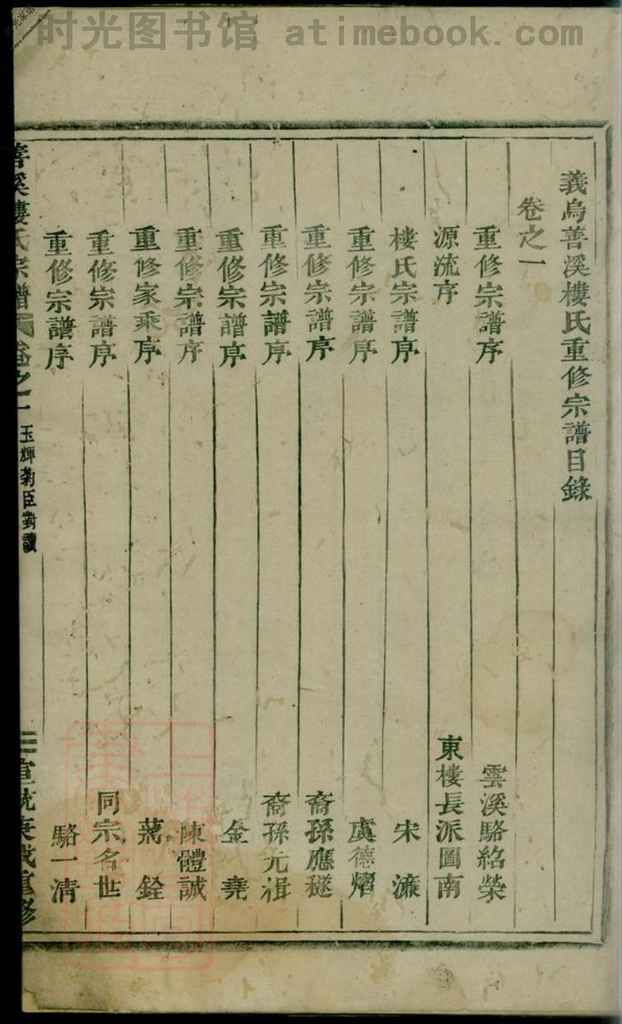 时光图书馆 atimebook.com
義烏善溪樓氏重修宗譜目錄
卷之一
重修宗譜序 雲溪駱紹榮
源流序 東樓長派圖南
樓氏宗譜序 宋濂
重修宗譜序 虞德熠
重修宗譜序 裔孫應鐩
重修宗譜序 裔孫元祖
重修宗譜序 金堯
重修宗譜序 陳體誠
重修家乘序 蔣銓
重修宗譜序 同宗名世
重修宗譜序 駱一清
善溪樓氏宗譜 卷之一 玉輝菊臣對讀 宣統庚戌重修